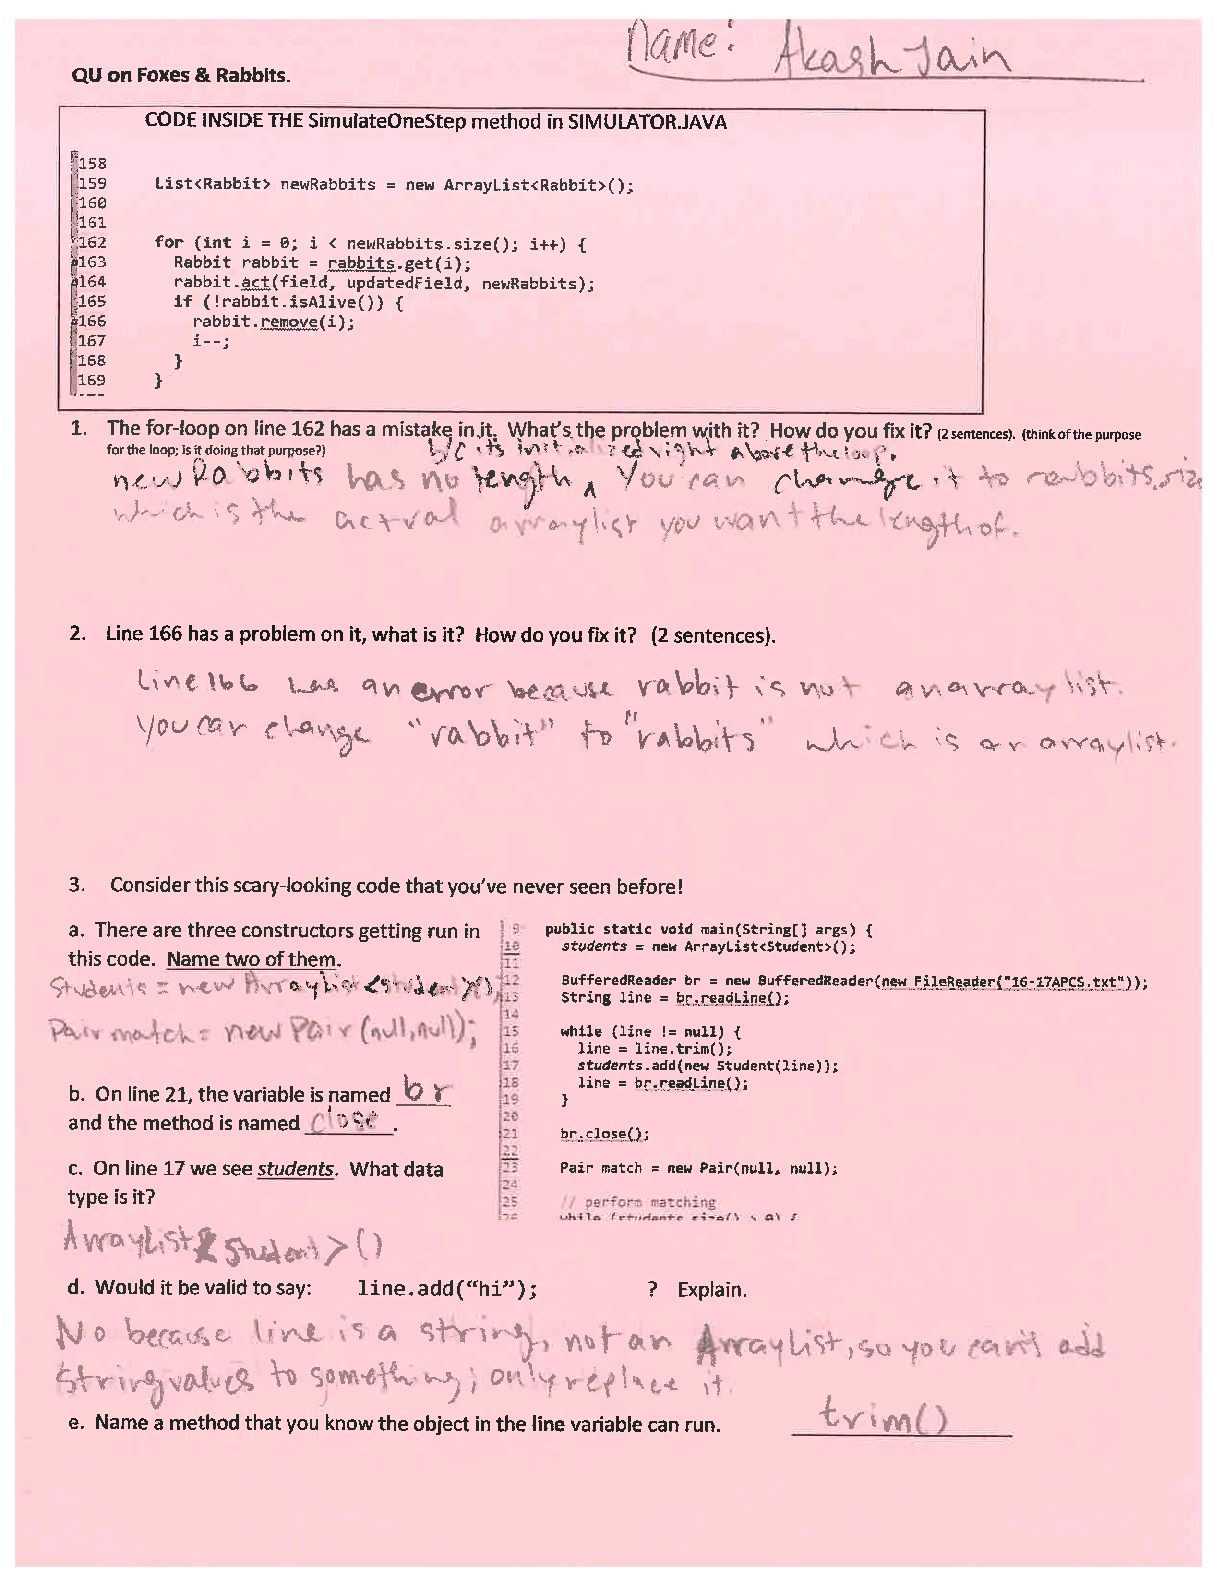 Name: Akash Jain
QU on Foxes & Rabbits.
CODE INSIDE THE SimulateOneStep method in SIMULATOR.JAVA
158
159 List<Rabbit> newRabbits = new ArrayList<Rabbit>();
160
161
162 for (int i = 0; i < newRabbits.size(); i++) {
163 Rabbit rabbit = rabbits.get(i);
164 rabbit.act(field, updatedField, newRabbits);
165 if (!rabbit.isAlive()) {
166 rabbit.remove(i);
167 i--;
168 }
169 }
1. The for-loop on line 162 has a mistake in it. What's the problem with it? How do you fix it? (2 sentences). (think of the purpose
for the loop; is it doing that purpose?) b/c its initialized right above the loop.
newRabbits has no length ^ . You can change it to rabbits.size
which is the actual arraylist you want the length of.
2. Line 166 has a problem on it, what is it? How do you fix it? (2 sentences).
Line 166 has an error because rabbit is not an array list.
You can change "rabbit" to "rabbits" which is an arraylist.
3. Consider this scary-looking code that you've never seen before!
a. There are three constructors getting run in
this code. Name two of them.
Students = new ArrayList<Student>();
Pair match = new Pair(null, null);
b. On line 21, the variable is named br
and the method is named close.
c. On line 17 we see students. What data
type is it?
ArrayList<Student>()
9 public static void main(String[] args) {
10 students = new ArrayList<Student>();
11
12 BufferedReader br = new BufferedReader(new FileReader("16-17APCS.txt"));
13 String line = br.readLine();
14
15 while (line != null) {
16 line = line.trim();
17 students.add(new Student(line));
18 line = br.readLine();
19 }
20
21 br.close();
22
23 Pair match = new Pair(null, null);
24
25 // perform matching
while (students.size() > 0) {
d. Would it be valid to say: line.add("hi"); ? Explain.
No because line is a string, not an ArrayList, so you can't add
String values to something; only replace it.
e. Name a method that you know the object in the line variable can run. trim()